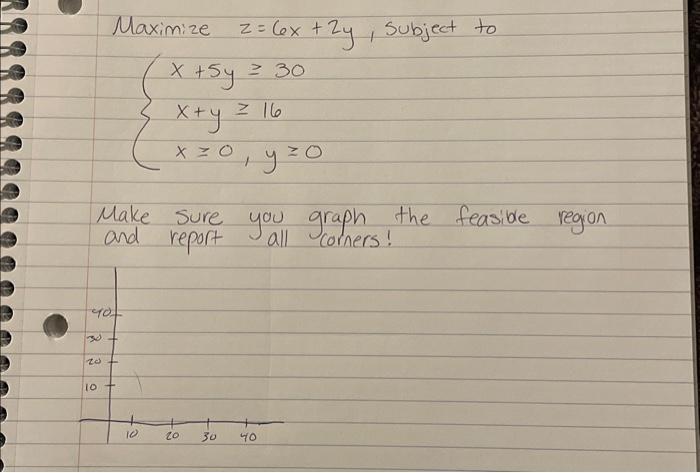 Maximize z = 6x + 2y, subject to
x + 5y ≥ 30
x + y ≥ 16
x ≥ 0, y ≥ 0
Make sure you graph the feasible region
and report all corners!
40
30
20
10
10 20 30 40